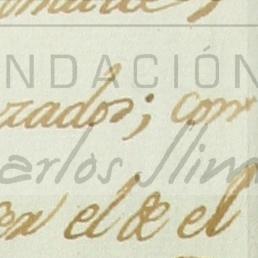 NDACIÓN
zados; con
arlos Slim
en el de el